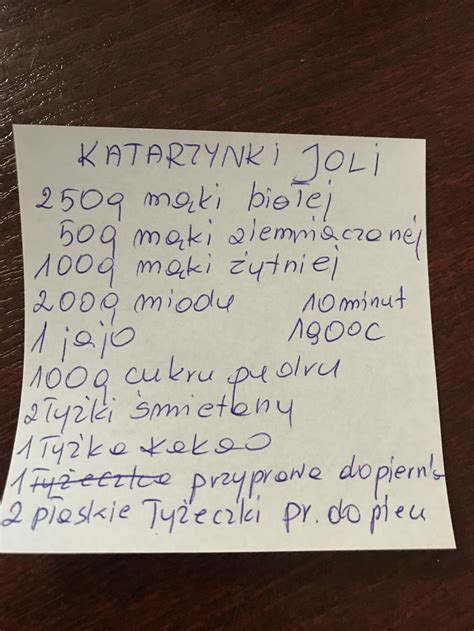 KATARZYNKI JOLI
250g mąki białej
50g mąki ziemniaczanej
100g mąki żytniej
200g miodu 10 minut
1 jajo 190°C
100g cukru pudru
2 łyżki śmietany
1 łyżka kakao
1 łyżeczka przyprawa do piernik
2 płaskie łyżeczki pr. do pieu